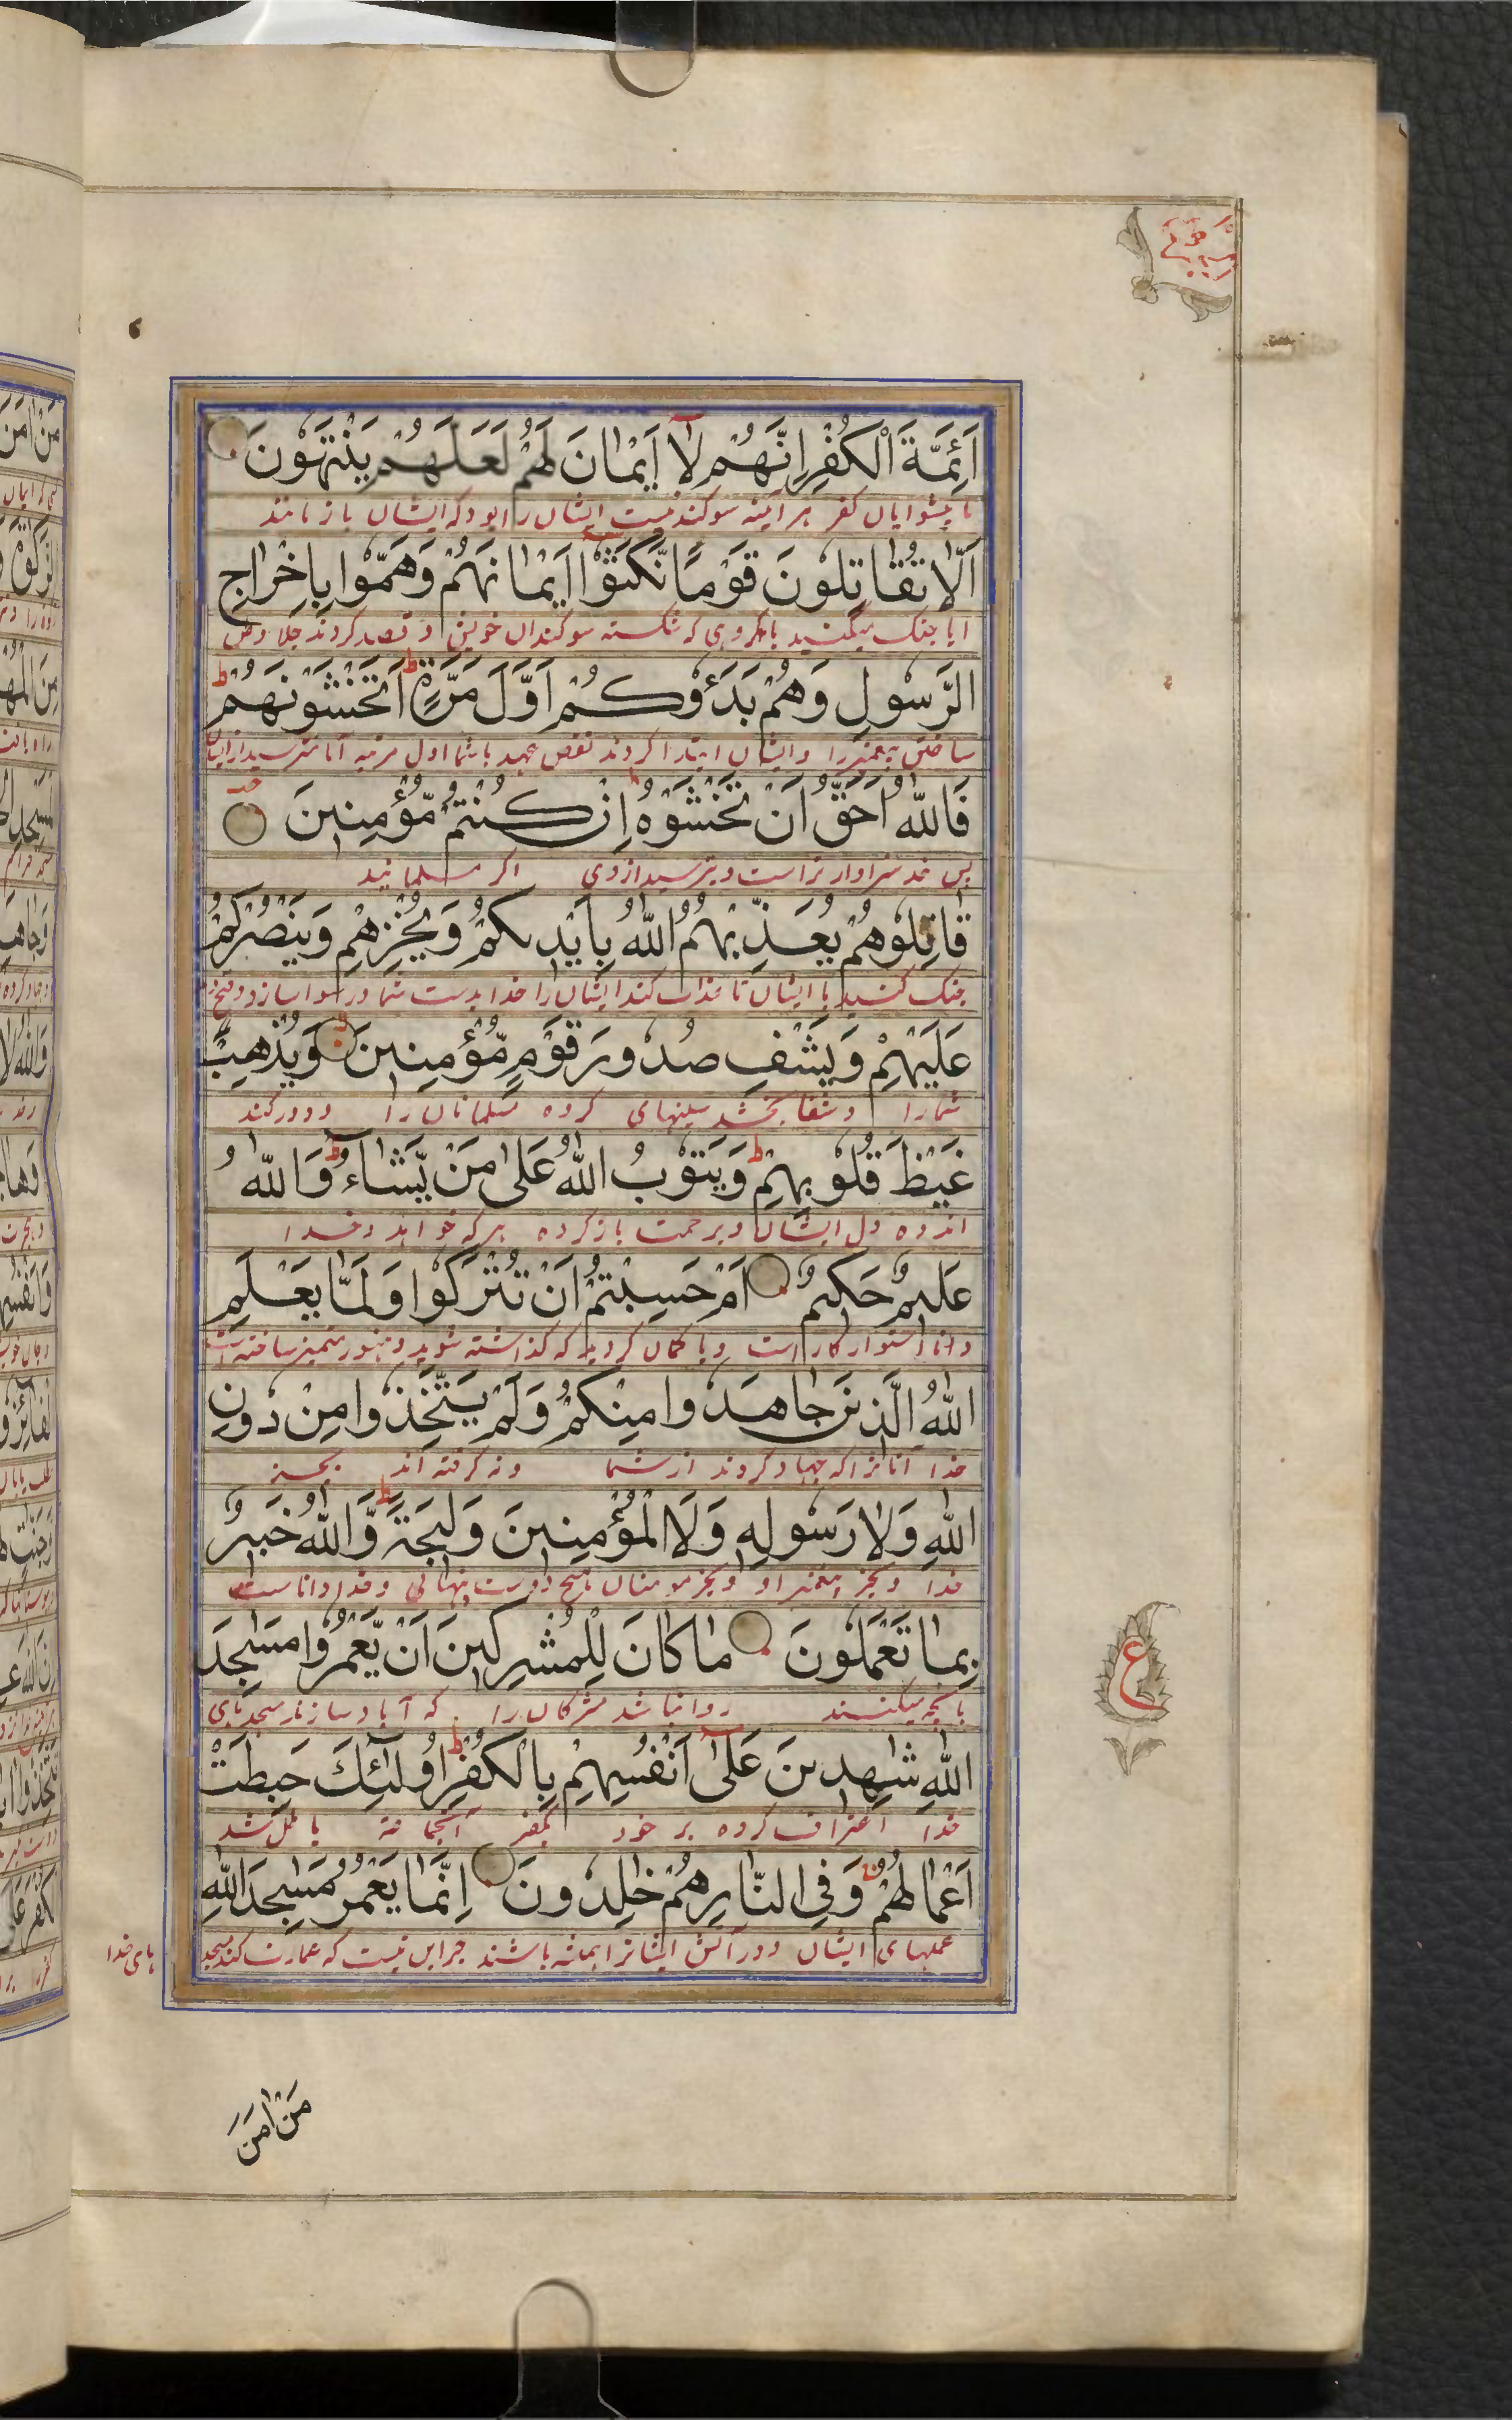 اَئِمَّةَ الْكُفْرِ اِنَّهُمْ لَا اَيْمَانَ لَهُمْ لَعَلَّهُمْ يَنْتَهُونَ
با پیشوایان کفر هر آینه سوکند نیست ایشان را بود که ایشان باز مانند
اَلَا تُقَاتِلُونَ قَوْمًا نَّكَثُوْا اَيْمَانَهُمْ وَهَمُّوا بِاِخْرَاجِ
ایا جنک نمیکنید با کروهی که شکسته سوکندان خویش و قصد کردند جلا وطن
الرَّسُولِ وَهُمْ بَدَءُوْكُمْ اَوَّلَ مَرَّةٍ اَتَخْشَوْنَهُمْ
ساختن پیغمبر را وایشان ابتدا کردند نقض عهد با شما اول مرتبه آیا میترسید از ایشان
فَاللّٰهُ اَحَقُّ اَنْ تَخْشَوْهُ اِنْ كُنْتُمْ مُّؤْمِنِينَ
پس خدا سزاوار تر است که بترسید از وی اکر مسلمانید
قَاتِلُوهُمْ يُعَذِّبْهُمُ اللّٰهُ بِاَيْدِيكُمْ وَيُخْزِهِمْ وَيَنْصُرْكُمْ
جنک کنید با ایشان تا عذاب کند ایشان را خدا بدست شما و رسوا سازد و فتح دهد
عَلَيْهِمْ وَيَشْفِ صُدُورَ قَوْمٍ مُّؤْمِنِينَ وَيُذْهِبْ
شما را و شفا بخشد سینهای کروه مسلمانان را و دور کند
غَيْظَ قُلُوبِهِمْ وَيَتُوْبُ اللّٰهُ عَلٰى مَنْ يَّشَاءُ وَاللّٰهُ
اندوه دل ایشان و برحمت باز کردد بر هر که خواهد و خدا
عَلِيمٌ حَكِيمٌ اَمْ حَسِبْتُمْ اَنْ تُتْرَكُوا وَلَمَّا يَعْلَمِ
دانا استوار کار است ویا کمان کردید که کذاشته شوید و هنوز متمیز نساخته است
اللّٰهُ الَّذِينَ جَاهَدُوا مِنْكُمْ وَلَمْ يَتَّخِذُوا مِنْ دُونِ
خدا آنانرا که جهاد کردند از شما و نه کرفته اند بجز
اللّٰهِ وَلَا رَسُولِهِ وَلَا الْمُؤْمِنِينَ وَلِيجَةً وَّاللّٰهُ خَبِيرٌ
خدا و بجز پیغمبر او و بجز مومنان هیچ دوست پنهانی و خدا دانا است
بِمَا تَعْمَلُونَ مَا كَانَ لِلْمُشْرِكِينَ اَنْ يَّعْمُرُوا مَسٰجِدَ
بآنچه میکنید روا نباشد مشرکان را که آباد سازند مسجدهای
اللّٰهِ شٰهِدِينَ عَلٰى اَنْفُسِهِمْ بِالْكُفْرِ اُولٰئِكَ حَبِطَتْ
خدا اعتراف کرده بر خود بکفر آنجماعت باطل شد
اَعْمَالُهُمْ وَفِي النَّارِ هُمْ خٰلِدُونَ اِنَّمَا يَعْمُرُ مَسٰجِدَ اللّٰهِ
عملهای ایشان و در آتش ایشانرا همیشه باشند جز این نیست که عمارت کند مسجد
های خدا
ع
مَنْ اٰمَنَ